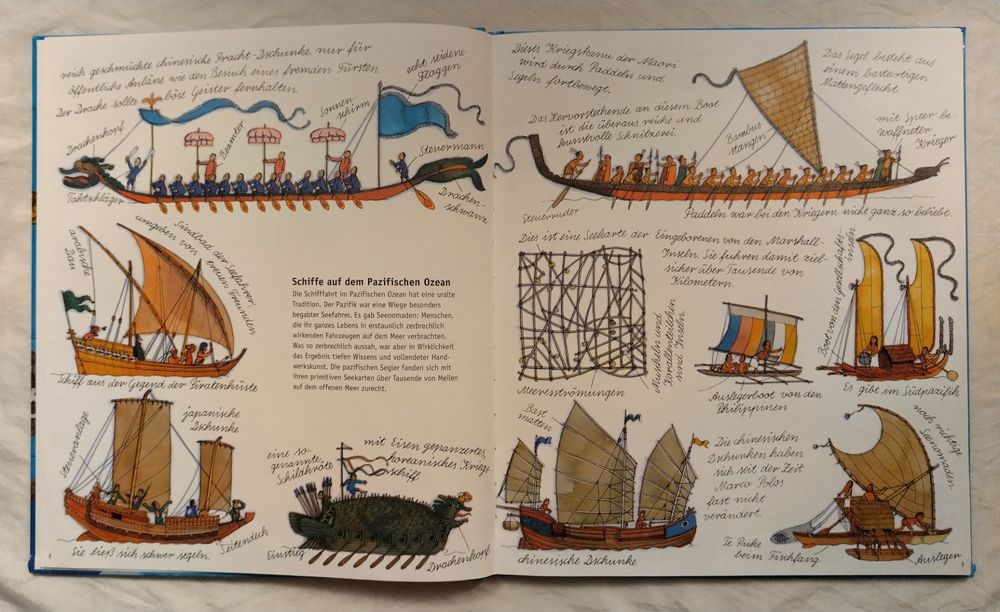 reich geschmückte chinesische Pracht-Dschunke, nur für
öffentliche Anläße wie den Besuch eines fremden Fürsten
Der Drache sollte böse Geister fernhalten.
echt seidene
Flaggen
Sonnen-
schirm
Beamter
Drachenkopf
Steuermann
Taktschläger
Drachen-
schwanz
Dieses Kriegskanu der Maori
wird durch Paddeln und
Segeln fortbewegt.
Das Segel besteht aus
einem bastartigen
Mattengeflecht.
Das Hervorstehende an diesem Boot
ist die überaus reiche und
kunstvolle Schnitzerei.
Bambus
stangen
mit Speer be
waffneter
Krieger
Steuerruder
Paddeln war bei den Kriegern nicht ganz so beliebt.
arabische
Dau
Sindbad der Seefahrer
umgeben von treuen Freunden
Schiff aus der Gegend der Piratenküste
Schiffe auf dem Pazifischen Ozean
Die Schifffahrt im Pazifischen Ozean hat eine uralte
Tradition. Der Pazifik war eine Wiege besonders
begabter Seefahrer. Es gab Seenomaden: Menschen,
die ihr ganzes Leben in erstaunlich zerbrechlich
wirkenden Fahrzeugen auf dem Meer verbrachten.
Was so zerbrechlich aussah, war aber in Wirklichkeit
das Ergebnis tiefen Wissens und vollendeter Hand-
werkskunst. Die pazifischen Segler fanden sich mit
ihren primitiven Seekarten über Tausende von Meilen
auf dem offenen Meer zurecht.
Dies ist eine Seekarte der Eingeborenen von den Marshall-
Inseln. Sie fuhren damit ziel-
sicher über Tausende von
Kilometern.
Muscheln und
Korallenstückchen
sind Inseln.
Meeresströmungen
Auslegerboot von den
Philippinen
Boot von den Gesellschafts-
inseln
Es gibt im Südpazifik
noch richtige
Seenomaden.
Steueranlage
japanische
Dschunke
Sie ließ sich schwer segeln.
Seitendeck
eine so-
genannte
Schildkröte
mit Eisen gepanzertes,
koreanisches Kriegs-
schiff
Einstieg
Drachenkopf
Bast
matten
Die chinesischen
Dschunken haben
sich seit der Zeit
Marco Polos
fast nicht
verändert.
chinesische Dschunke
Te Puke
beim Fischfang
Ausleger
9